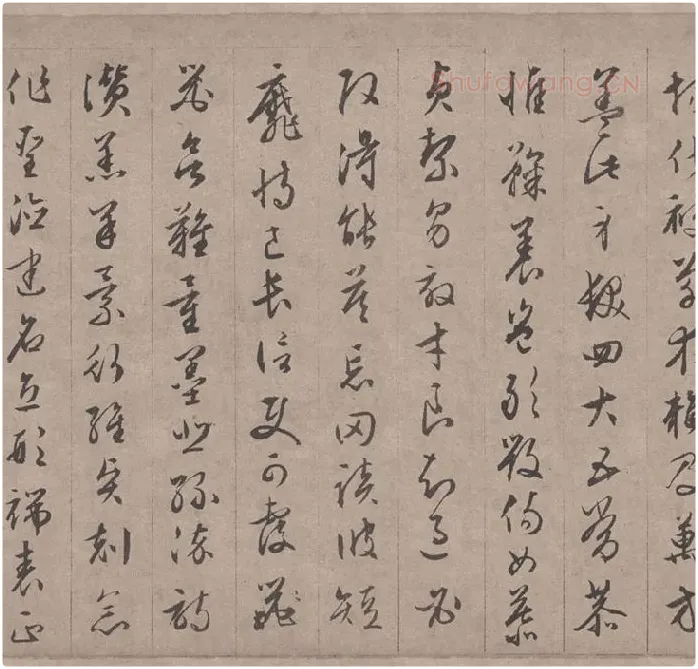 場化被草木賴及萬方
蓋此身髮四大五常恭
惟鞠養豈敢毀傷女慕
貞絜男效才良知過必
改得能莫忘罔談彼短
靡恃己長信使可覆器
器欲難量墨悲絲染詩
讚羔羊景行維賢剋念
作聖德建名立形端表正
Shufawang.CN